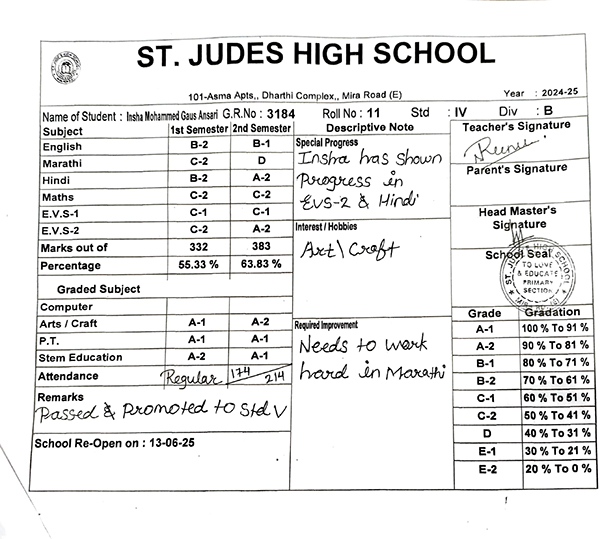 ST. JUDES HIGH SCHOOL
101-Asma Apts,, Dharthi Complex,, Mira Road (E)
Year : 2024-25
Name of Student : Insha Mohammed Gaus Ansari G.R.No : 3184 Roll No : 11 Std : IV Div : B
Subject 1st Semester 2nd Semester
English B-2 B-1
Marathi C-2 D
Hindi B-2 A-2
Maths C-2 C-2
E.V.S-1 C-1 C-1
E.V.S-2 C-2 A-2
Marks out of 332 383
Percentage 55.33 % 63.83 %
Graded Subject
Computer
Arts / Craft A-1 A-2
P.T. A-1 A-1
Stem Education A-2 A-1
Attendance Regular 174/214
Remarks
Passed & Promoted to Std V
School Re-Open on : 13-06-25
Descriptive Note
Special Progress
Insha has shown
Progress in
EVS-2 & Hindi
Interest / Hobbies
Art\Craft
Required Improvement
Needs to work
hard in Marathi
Teacher's Signature
Parent's Signature
Head Master's
Signature
School Seal
ST. JUDE'S HIGH SCHOOL
TO LOVE
& EDUCATE
PRIMARY
SECTION
Grade Gradation
A-1 100 % To 91 %
A-2 90 % To 81 %
B-1 80 % To 71 %
B-2 70 % To 61 %
C-1 60 % To 51 %
C-2 50 % To 41 %
D 40 % To 31 %
E-1 30 % To 21 %
E-2 20 % To 0 %